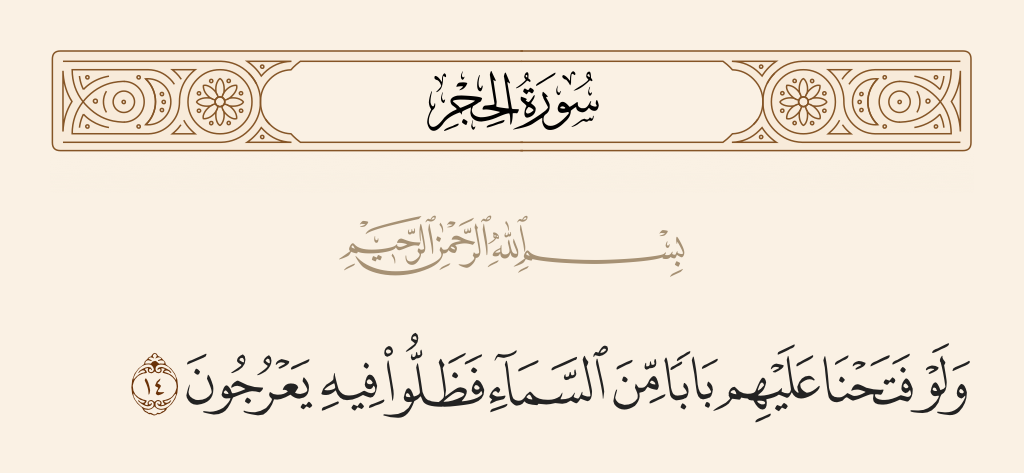 سُورَةُ الحِجْرِ
بِسْمِ ٱللَّهِ ٱلرَّحْمَٰنِ ٱلرَّحِيمِ
وَلَوْ فَتَحْنَا عَلَيْهِم بَابًا مِّنَ ٱلسَّمَآءِ فَظَلُّوا۟ فِيهِ يَعْرُجُونَ ١٤